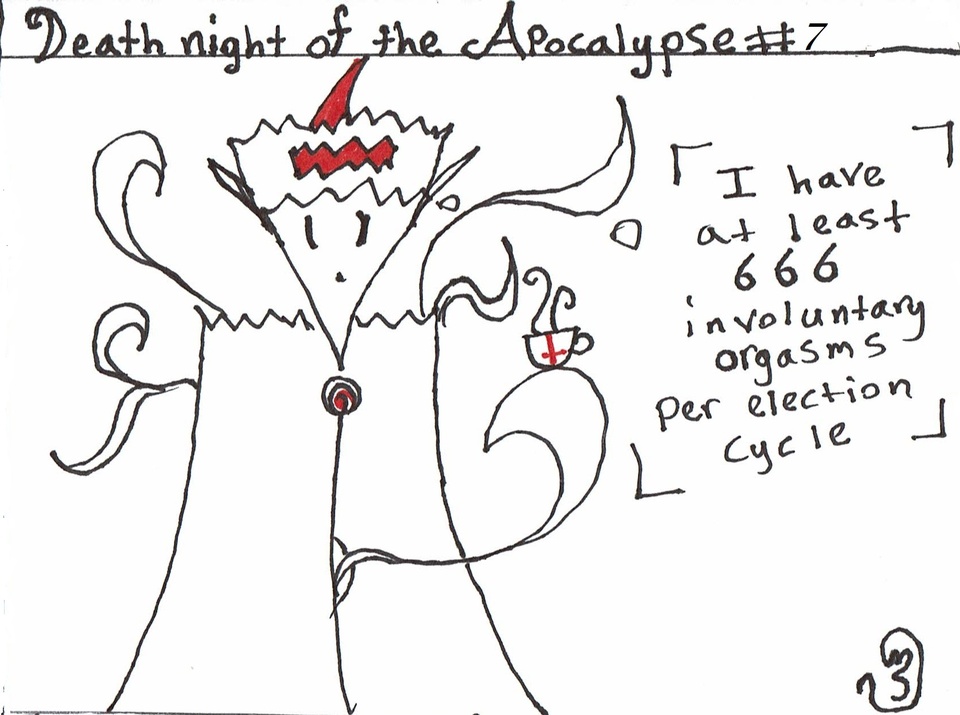 Death night of the Apocalypse #7
I have
at least
666
involuntary
orgasms
Per election
cycle